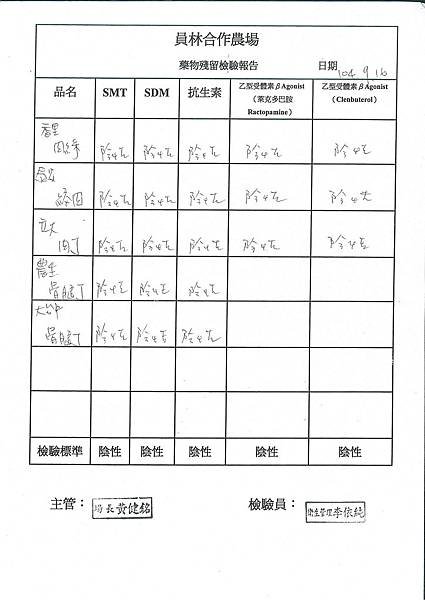 員林合作農場
藥物殘留檢驗報告 日期 104 9 16
品名 SMT SDM 抗生素 乙型受體素βAgonist（萊克多巴胺 Ractopamine） 乙型受體素βAgonist（Clenbuterol）
陰性 陰性 陰性 陰性 陰性
陰性 陰性 陰性 陰性 陰性
立大 肉丁 陰性 陰性 陰性 陰性 陰性
陰性 陰性 陰性
陰性 陰性 陰性
檢驗標準 陰性 陰性 陰性 陰性 陰性
主管： 場長黃健銘 檢驗員： 衛生管理李依純